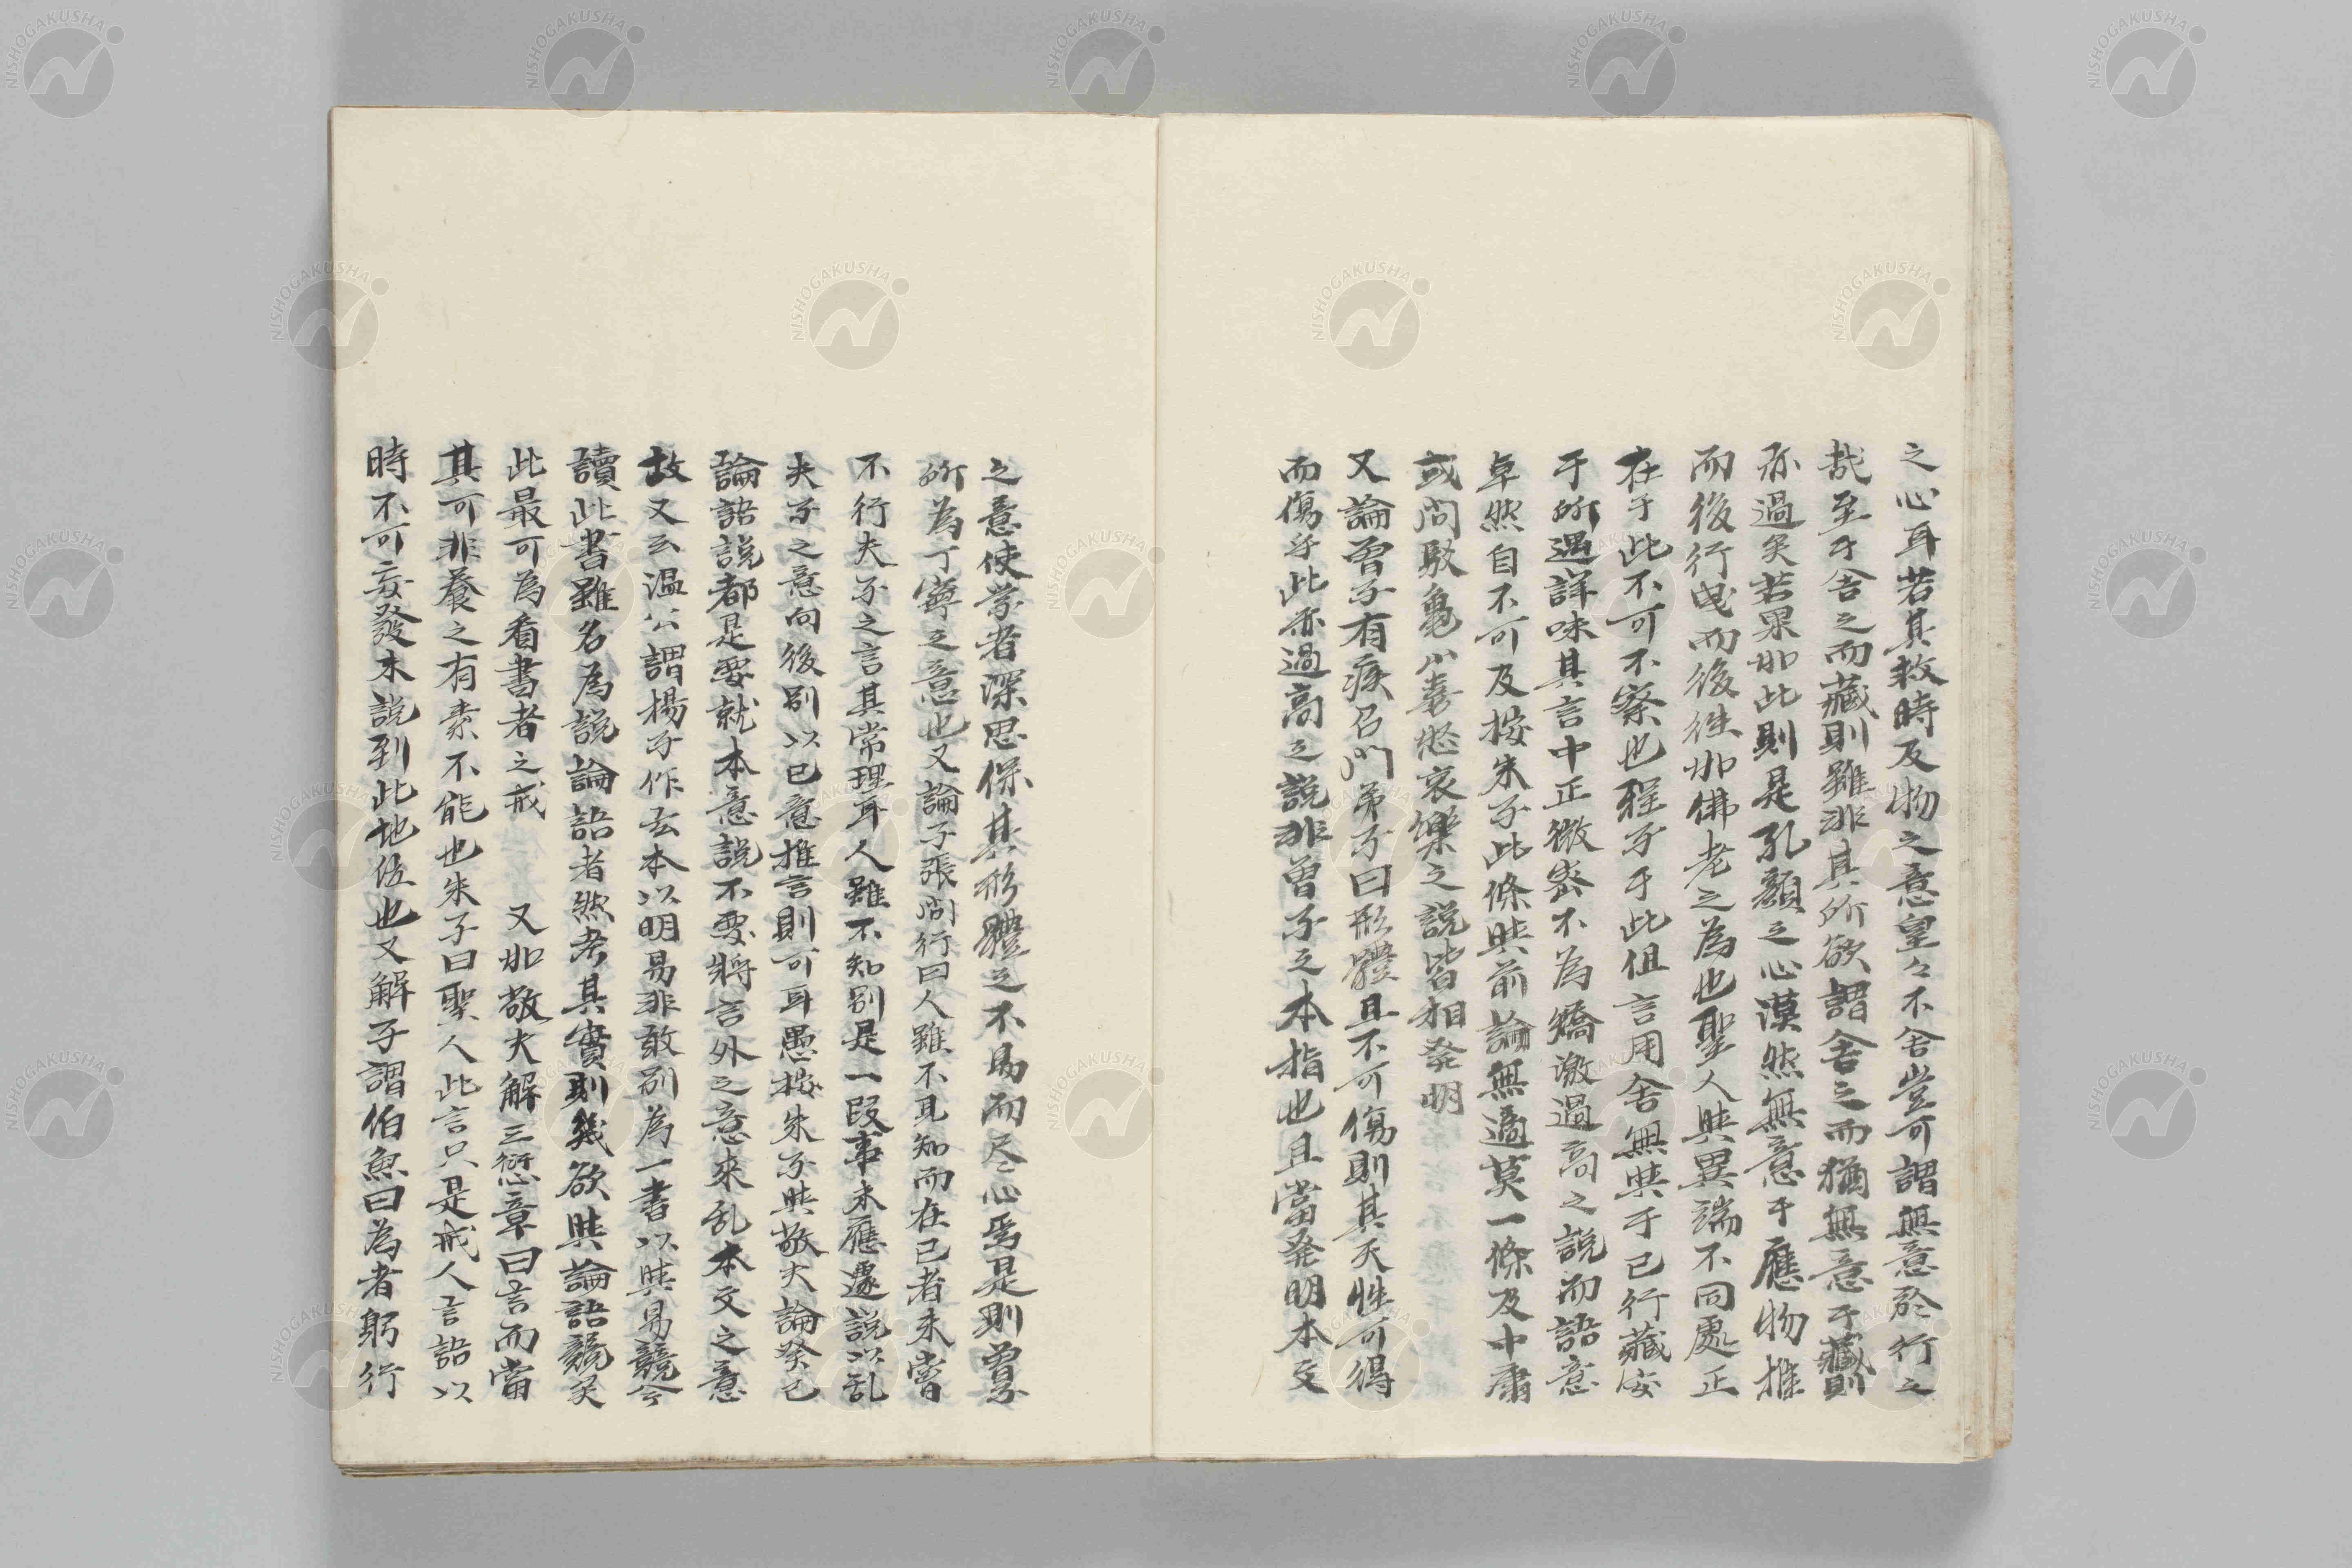 之心耳若其救時及物之意皇々不舍豈可謂無意於行之
哉至于舍之而藏則雖非其所欲謂舍之而猶無意于藏則
亦過矣若果如此則是孔顏之心漠然無意于應物推
而後行曳而後徃如佛老之為也聖人與異端不同處正
在于此不可不察也程子于此但言用舍無與于己行藏安
于所遇詳味其言中正微密不為矯激過高之說而語意
卓然自不可及按朱子此條與前論無適莫一條及中庸
或問駁龜山喜怒哀樂之説皆相発明
又論曾子有疾召門弟子曰形體且不可傷則其天性可得
而傷乎此亦過高之説非曾子之本指也且當発明本文
之意使学者深思保其形體之不易而尽心焉是則曽子
所為丁寧之意也又論子張問行曰人雖不見知而在己者未嘗
不行夫子之言其常理耳人雖不知別是一段事未應遽説以乱
夫子之意向後別以己意推言則可耳愚按朱子與敬夫論癸已
論語説都是要就本意説不要將言外之意來乱本文之意
故又云溫公謂揚子作玄本以明易非敢別為一書以與易競今
讀此書雖名為説論語者然考其實則幾欲與論語競矣
此最可為看書者之戒 又如敬夫解三愆章曰言而當
其可非養之有素不能也朱子曰聖人此言只是戒人言語以
時不可妄發未説到此地位也又解子謂伯魚曰為者躬行
NISHOGAKUSHA